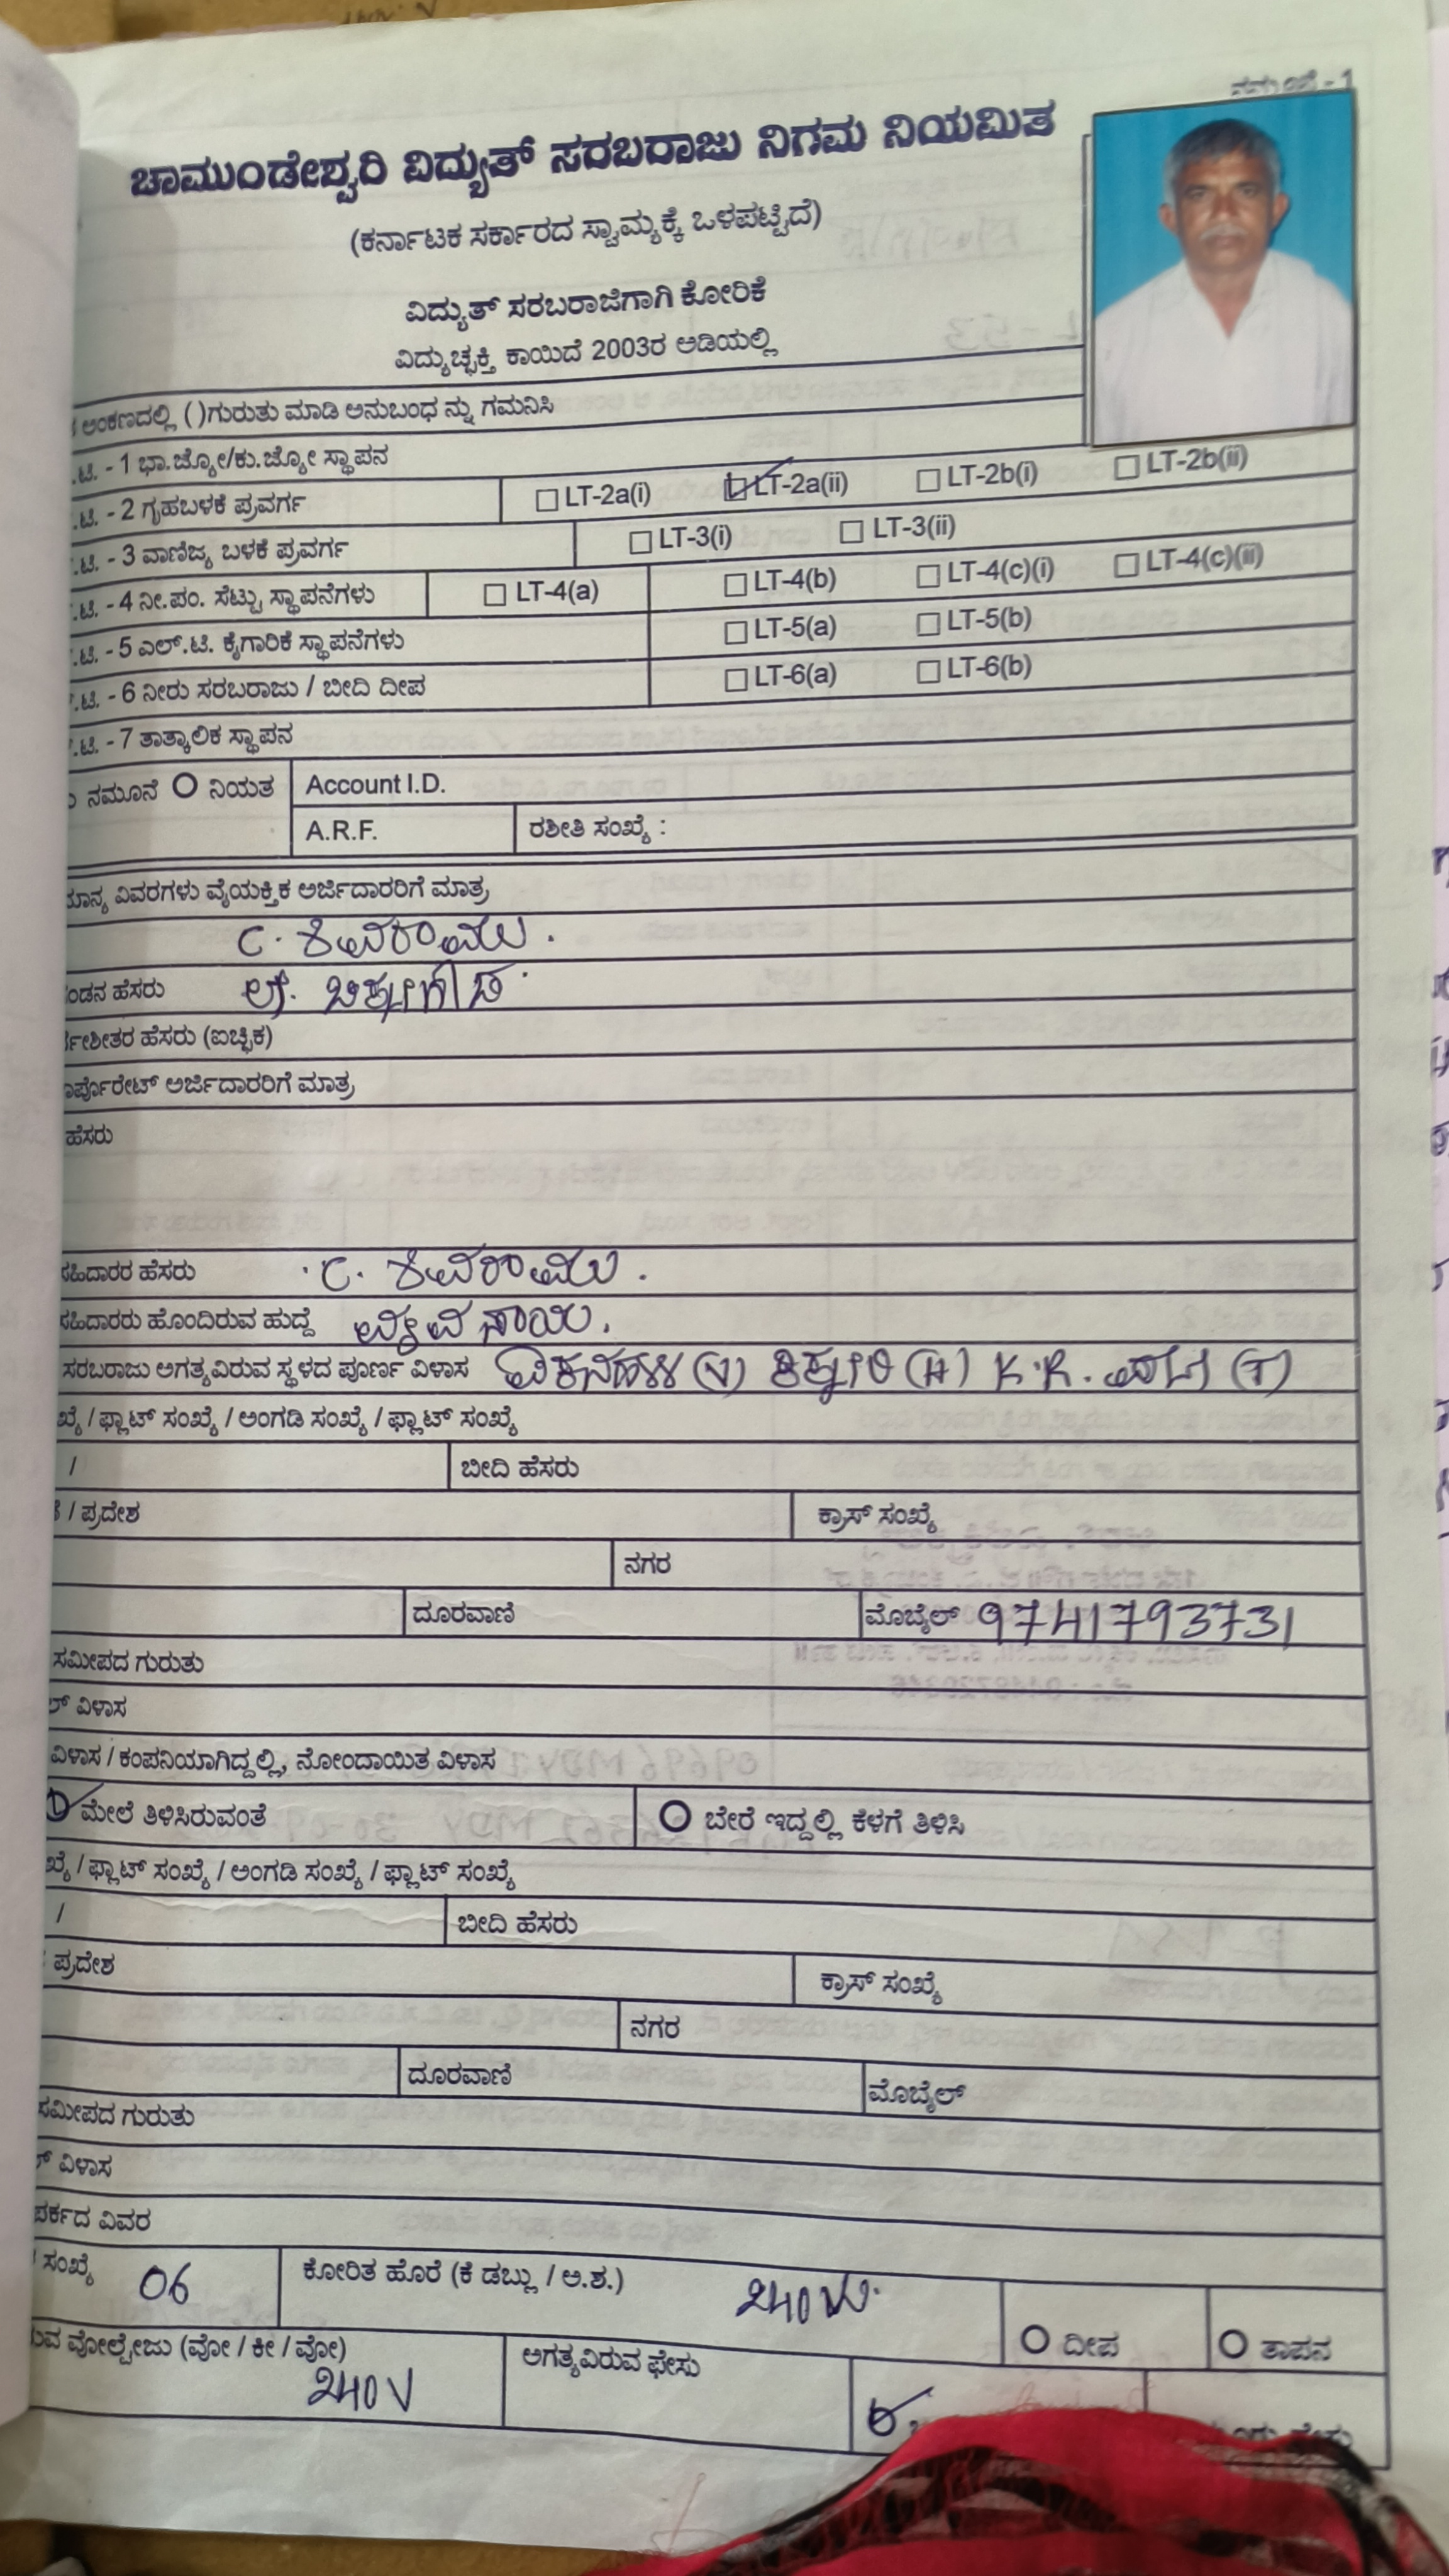 ನಮೂನೆ - 1
ಚಾಮುಂಡೇಶ್ವರಿ ವಿದ್ಯುತ್ ಸರಬರಾಜು ನಿಗಮ ನಿಯಮಿತ
(ಕರ್ನಾಟಕ ಸರ್ಕಾರದ ಸ್ವಾಮ್ಯಕ್ಕೆ ಒಳಪಟ್ಟಿದೆ)
ವಿದ್ಯುತ್ ಸರಬರಾಜಿಗಾಗಿ ಕೋರಿಕೆ
ವಿದ್ಯುಚ್ಛಕ್ತಿ ಕಾಯಿದೆ 2003ರ ಅಡಿಯಲ್ಲಿ
ಅಂಕಣದಲ್ಲಿ ( )ಗುರುತು ಮಾಡಿ ಅನುಬಂಧ ನ್ನು ಗಮನಿಸಿ
.ಟಿ. - 1 ಭಾ.ಜ್ಯೋ/ಕು.ಜ್ಯೋ ಸ್ಥಾಪನ
.ಟಿ. - 2 ಗೃಹಬಳಕೆ ಪ್ರವರ್ಗ LT-2a(i) LT-2a(ii) LT-2b(i) LT-2b(ii)
.ಟಿ. - 3 ವಾಣಿಜ್ಯ ಬಳಕೆ ಪ್ರವರ್ಗ LT-3(i) LT-3(ii)
.ಟಿ. - 4 ನೀ.ಪಂ. ಸೆಟ್ಟು ಸ್ಥಾಪನೆಗಳು LT-4(a) LT-4(b) LT-4(c)(i) LT-4(c)(ii)
.ಟಿ. - 5 ಎಲ್.ಟಿ. ಕೈಗಾರಿಕೆ ಸ್ಥಾಪನೆಗಳು LT-5(a) LT-5(b)
.ಟಿ. - 6 ನೀರು ಸರಬರಾಜು / ಬೀದಿ ದೀಪ LT-6(a) LT-6(b)
.ಟಿ. - 7 ತಾತ್ಕಾಲಿಕ ಸ್ಥಾಪನ
ನಮೂನೆ ನಿಯತ Account I.D.
A.R.F. ರಶೀತಿ ಸಂಖ್ಯೆ :
ವಿವರಗಳು ವೈಯಕ್ತಿಕ ಅರ್ಜಿದಾರರಿಗೆ ಮಾತ್ರ
C. ಶಿವರಾಮು.
ಂಡನ ಹೆಸರು ಲೇ.
ಹೆಸರು (ಐಚ್ಛಿಕ)
ಾರ್ಪೊರೇಟ್ ಅರ್ಜಿದಾರರಿಗೆ ಮಾತ್ರ
ಹೆಸರು
ಸಹಿದಾರರ ಹೆಸರು C. ಶಿವರಾಮು.
ಸಹಿದಾರರು ಹೊಂದಿರುವ ಹುದ್ದೆ ವ್ಯವಸಾಯ.
ಸರಬರಾಜು ಅಗತ್ಯವಿರುವ ಸ್ಥಳದ ಪೂರ್ಣ ವಿಳಾಸ (V) ಕಿಕ್ಕೇರಿ (H) K.R. ಪೇಟೆ (T)
ಖ್ಯೆ / ಫ್ಲಾಟ್ ಸಂಖ್ಯೆ / ಅಂಗಡಿ ಸಂಖ್ಯೆ / ಫ್ಲಾಟ್ ಸಂಖ್ಯೆ
/ ಬೀದಿ ಹೆಸರು
/ ಪ್ರದೇಶ ಕ್ರಾಸ್ ಸಂಖ್ಯೆ
ನಗರ
ದೂರವಾಣಿ ಮೊಬೈಲ್ 9741793731
ಸಮೀಪದ ಗುರುತು
ವಿಳಾಸ
ವಿಳಾಸ / ಕಂಪನಿಯಾಗಿದ್ದಲ್ಲಿ, ನೋಂದಾಯಿತ ವಿಳಾಸ
ಮೇಲೆ ತಿಳಿಸಿರುವಂತೆ ಬೇರೆ ಇದ್ದಲ್ಲಿ ಕೆಳಗೆ ತಿಳಿಸಿ
ಖ್ಯೆ / ಫ್ಲಾಟ್ ಸಂಖ್ಯೆ / ಅಂಗಡಿ ಸಂಖ್ಯೆ / ಫ್ಲಾಟ್ ಸಂಖ್ಯೆ
/ ಬೀದಿ ಹೆಸರು
ಪ್ರದೇಶ ಕ್ರಾಸ್ ಸಂಖ್ಯೆ
ನಗರ
ದೂರವಾಣಿ ಮೊಬೈಲ್
ಸಮೀಪದ ಗುರುತು
ವಿಳಾಸ
ಪರ್ಕದ ವಿವರ
ಸಂಖ್ಯೆ 06 ಕೋರಿತ ಹೊರೆ (ಕೆ ಡಬ್ಲು / ಅ.ಶ.) 240 W. ದೀಪ ತಾಪನ
ುವ ವೋಲ್ಟೇಜು (ವೋ / ಕೀ / ವೋ) 240 V ಅಗತ್ಯವಿರುವ ಫೇಸು